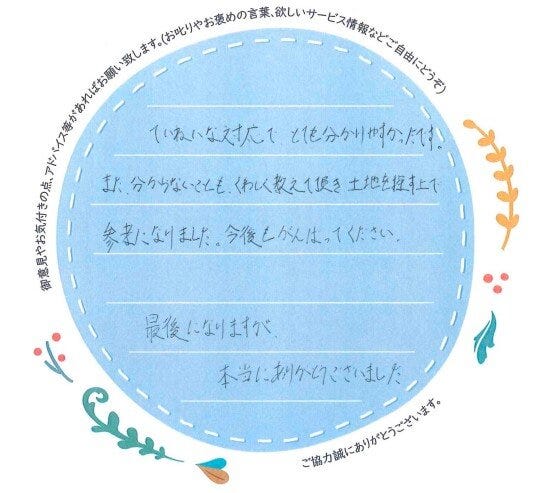 御意見やお気付きの点、アドバイス等があればお願い致します。(お叱りやお褒めの言葉、欲しいサービス情報などご自由にどうぞ)
ていねいな対応で とても分かりやすかったです。
また、分からないことも、くわしく教えて頂き 土地を探す上で
参考になりました。今後もがんばってください。
最後になりますが、
本当にありがとうございました
ご協力誠にありがとうございます。